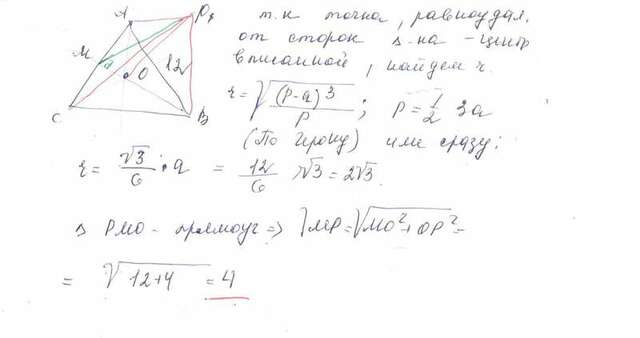 т.к точка, равноудал.
от сторон Δ-на - центр
вписанной, найдем r.
A
P
M
O
12
C
B
r = √((p-a)³/p) ; p = 1/2 3a
(По Герону) или сразу:
r = √3/6 · a = 12/6 · √3 = 2√3.
Δ PMO - прямоуг => MP = √(MO² + OP²) =
= √(12+4) = 4